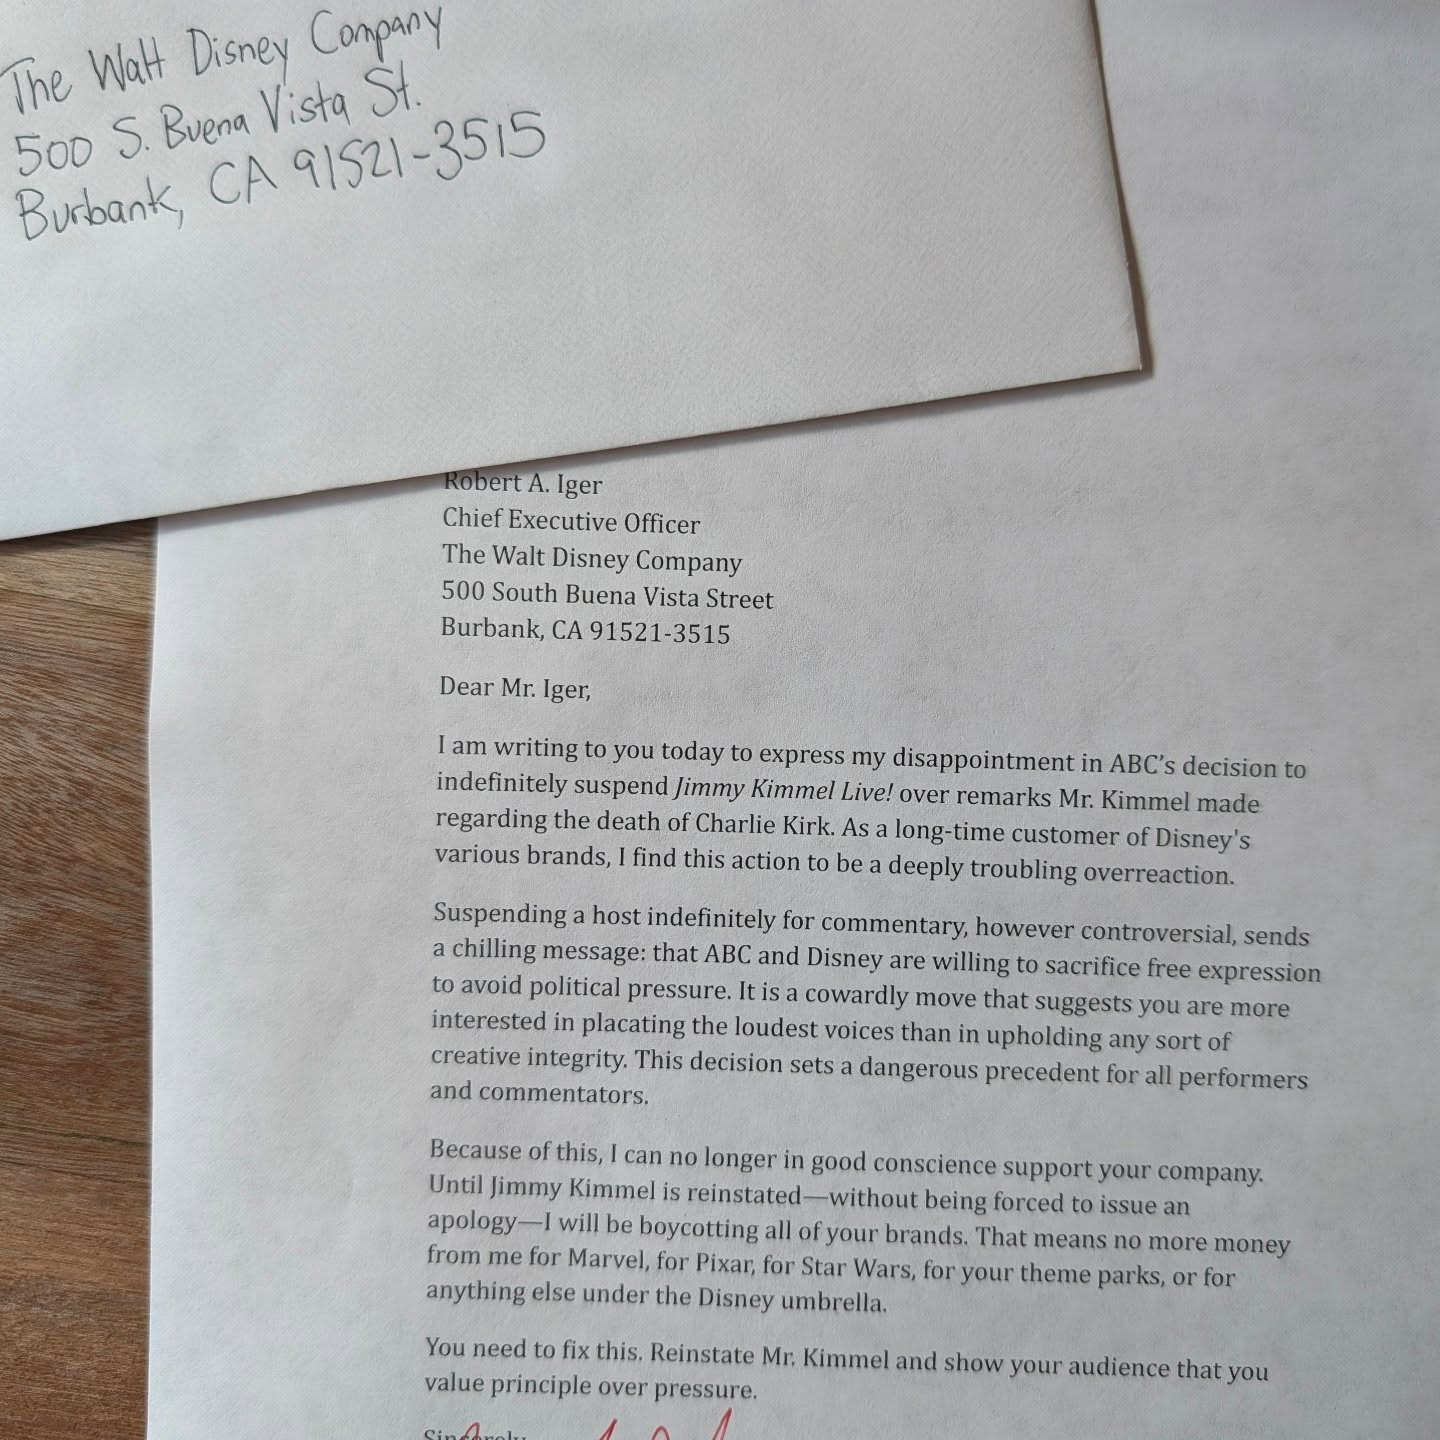 The Walt Disney Company
500 S. Buena Vista St.
Burbank, CA 91521-3515
Robert A. Iger
Chief Executive Officer
The Walt Disney Company
500 South Buena Vista Street
Burbank, CA 91521-3515
Dear Mr. Iger,
I am writing to you today to express my disappointment in ABC’s decision to
indefinitely suspend Jimmy Kimmel Live! over remarks Mr. Kimmel made
regarding the death of Charlie Kirk. As a long-time customer of Disney's
various brands, I find this action to be a deeply troubling overreaction.
Suspending a host indefinitely for commentary, however controversial, sends
a chilling message: that ABC and Disney are willing to sacrifice free expression
to avoid political pressure. It is a cowardly move that suggests you are more
interested in placating the loudest voices than in upholding any sort of
creative integrity. This decision sets a dangerous precedent for all performers
and commentators.
Because of this, I can no longer in good conscience support your company.
Until Jimmy Kimmel is reinstated—without being forced to issue an
apology—I will be boycotting all of your brands. That means no more money
from me for Marvel, for Pixar, for Star Wars, for your theme parks, or for
anything else under the Disney umbrella.
You need to fix this. Reinstate Mr. Kimmel and show your audience that you
value principle over pressure.
Sincerely,